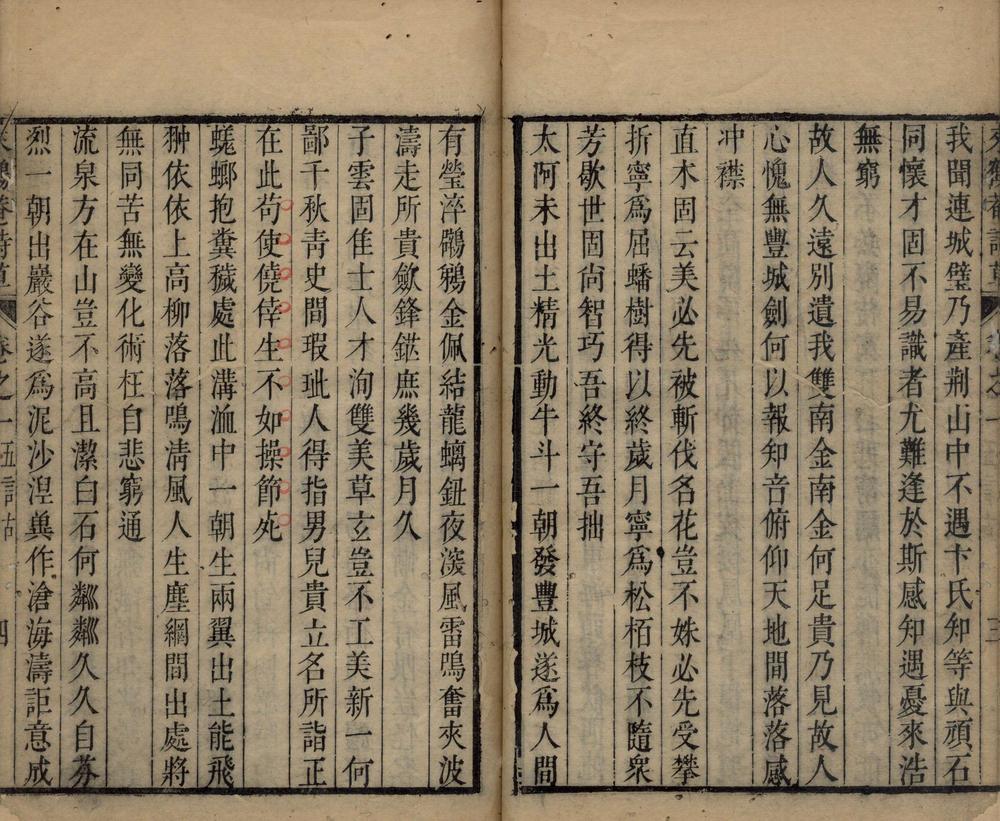 我聞連城璧乃產荆山中不遇卞氏知等與頑石
同懷才固不易識者尤難逢於斯感知遇憂來浩
無窮
故人久遠別遺我雙南金南金何足貴乃見故人
心愧無豐城劍何以報知音俯仰天地間落落感
冲襟
直木固云美必先被斬伐名花豈不姝必先受攀
折寧爲屈蟠樹得以終歲月寧爲松栢枝不隨衆
芳歇世固尙智巧吾終守吾拙
太阿未出土精光動牛斗一朝發豐城遂爲人間
有瑩淬鷿鵜金佩結龍螭鈕夜深風雷鳴奮夾波
濤走所貴歛鋒鋩庶幾歲月久
子雲固佳士人才洵雙美草玄豈不工美新一何
鄙千秋靑史間瑕玼人得指男兒貴立名所詣正
在此苟使僥倖生不如操節死
蜣螂抱糞穢處此溝洫中一朝生兩翼出土能飛
翀依依上高柳落落鳴淸風人生塵網間出處將
無同苦無變化術枉自悲窮通
流泉方在山豈不高且潔白石何粼粼久久自芬
烈一朝出巖谷遂爲泥沙湼糞作滄海濤詎意成
卷之一五言古 四